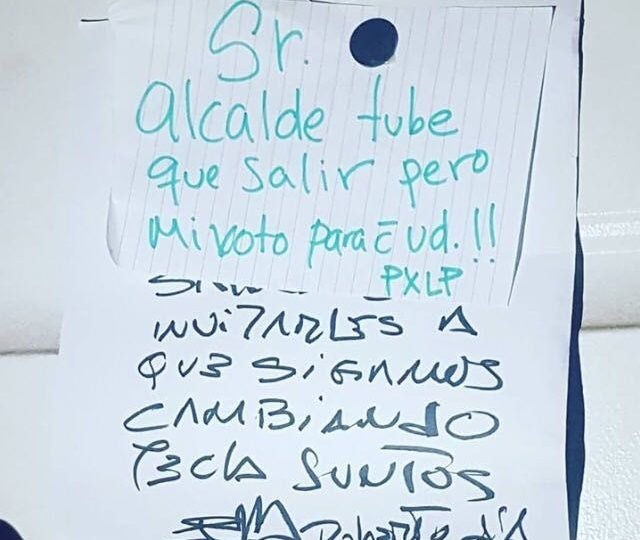 Sr.
Alcalde tube
que salir pero
mi voto para ud.!!
PXLP
INVITARLES A
QUE SIGAMOS
CAMBIANDO
TECLA
Roberto d'A